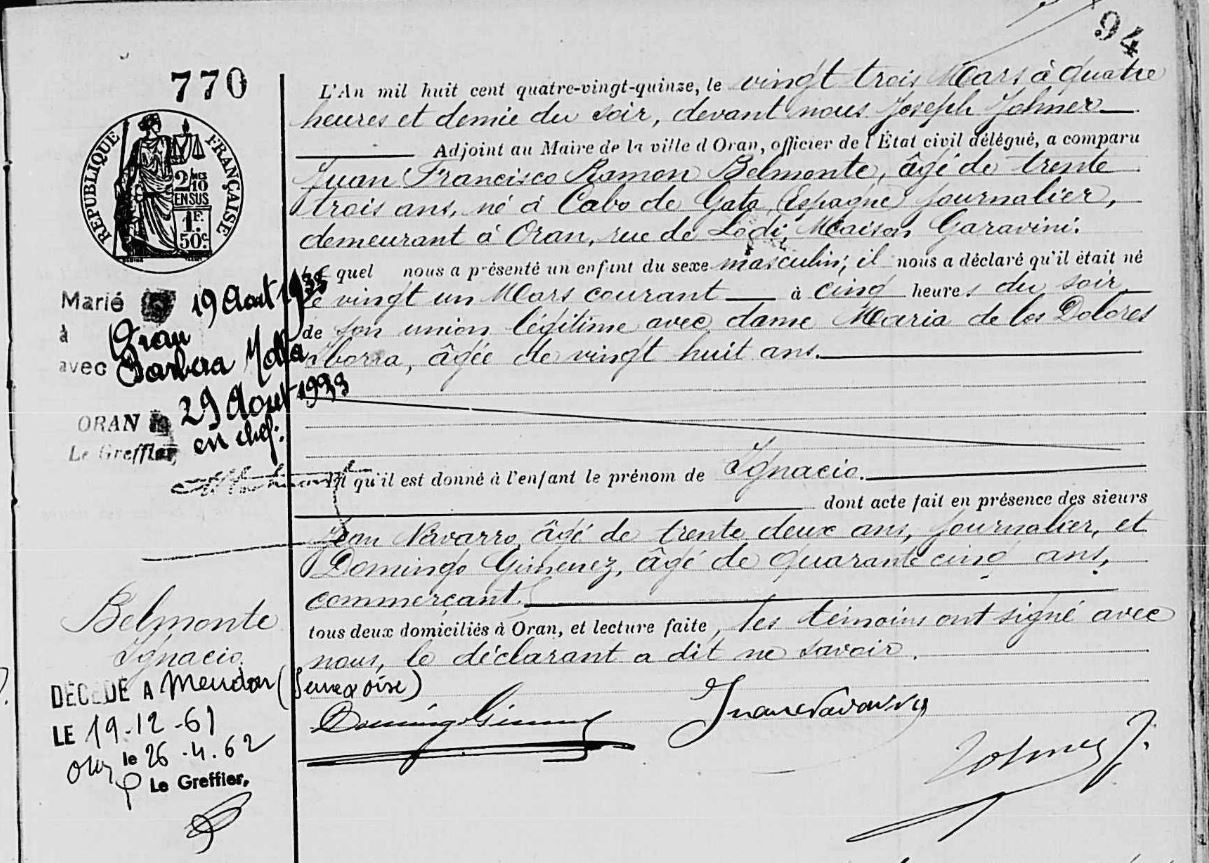 94
770
RÉPUBLIQUE FRANÇAISE
2/10
EN SUS
1F.
50c
L'An mil huit cent quatre-vingt-quinze, le vingt trois Mars à quatre
heures et demie du soir, devant nous Joseph Johner
Adjoint au Maire de la ville d'Oran, officier de l'État civil délégué, a comparu
Juan Francisco Ramon Belmonte, âgé de trente
trois ans, né à Cabo de Gata (Espagne) journalier,
demeurant à Oran, rue de Lodi Maison Garavini.
Le quel nous a présenté un enfant du sexe masculin; il nous a déclaré qu'il était né
le vingt un Mars courant à cinq heures du soir
de son union légitime avec dame Maria de los Dolores
Iborra, âgée de vingt huit ans.
Et qu'il est donné à l'enfant le prénom de Ignacio.
dont acte fait en présence des sieurs
Jean Navarro, âgé de trente deux ans, journalier, et
Domingo Gimenez, âgé de quarante cinq ans,
commerçant.
tous deux domiciliés à Oran, et lecture faite, les témoins ont signé avec
nous, le déclarant a dit ne savoir.
Johner J.
Marié 19 Aout
à Oran
avec Barbera Molla
ORAN 29 Aout 1933
Le Greffier en chef:
Belmonte
Ignacio
DÉCÉDÉ A Meudon (Seine & Oise)
LE 19-12-61
le 26-4-62
Le Greffier,